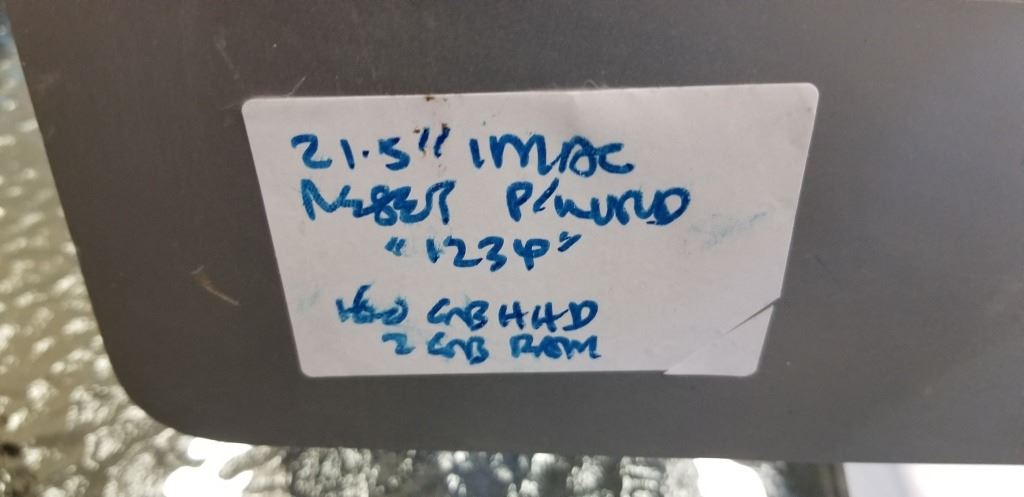 21.5" IMAC
RESET P/WORD
"1234"
160 GB HHD
2 GB RAM